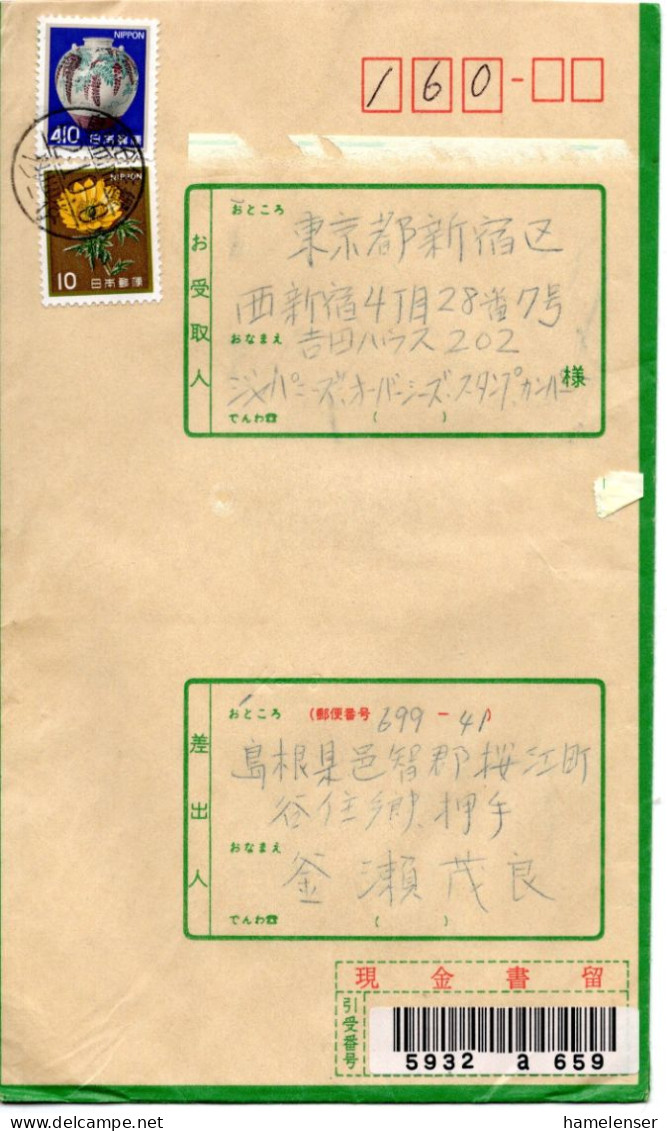 NIPPON
410 日本郵便
NIPPON
10 日本郵便
160-
お受取人
おところ
東京都新宿区
西新宿4丁目28番7号
おなまえ
吉田ハウス202
ジャパニーズ・オーバーシーズ・スタンプ・カンパニー
様
でんわ☎ ( )
差出人
おところ (郵便番号 699-41)
島根県邑智郡桜江町
谷住郷、押手
おなまえ
釜瀬茂良
でんわ☎ ( )
現金書留
引受番号
5932 a 659
hamelenser